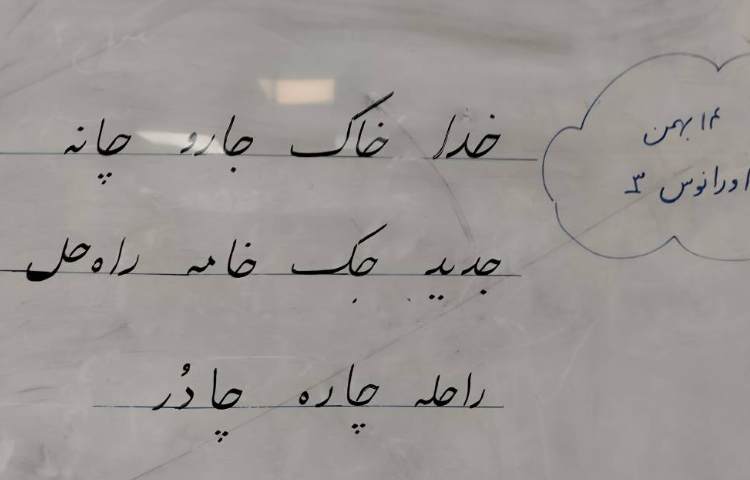 خدا خاک جارو چانه
جدید جک خامه راه‌حل
راحله چاره چادُر
۱۴ بهمن
اورانوس ۳